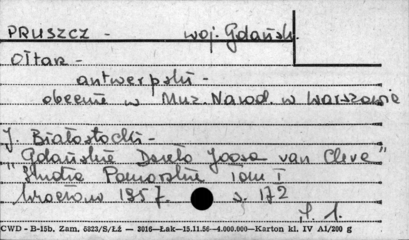 PRUSZCZ - woj. Gdańsk.
Ołtarz -
antwerpski -
obecnie w Muz. Narod. w Warszawie
J. Białostocki -
"Gdańskie Dzieło Joosa van Cleve"
Studia Pomorskie Tom I
Wrocław 1957. s. 172
f. 1.
CWD - B-15b. Zam. 5823/S/ŁŻ — 3016—Łak—15.11.56—4.000.000—Karton kl. IV A1/200 g